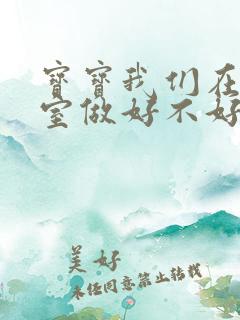 宝宝我们在
室做好不好
美好
未经同意禁止转载